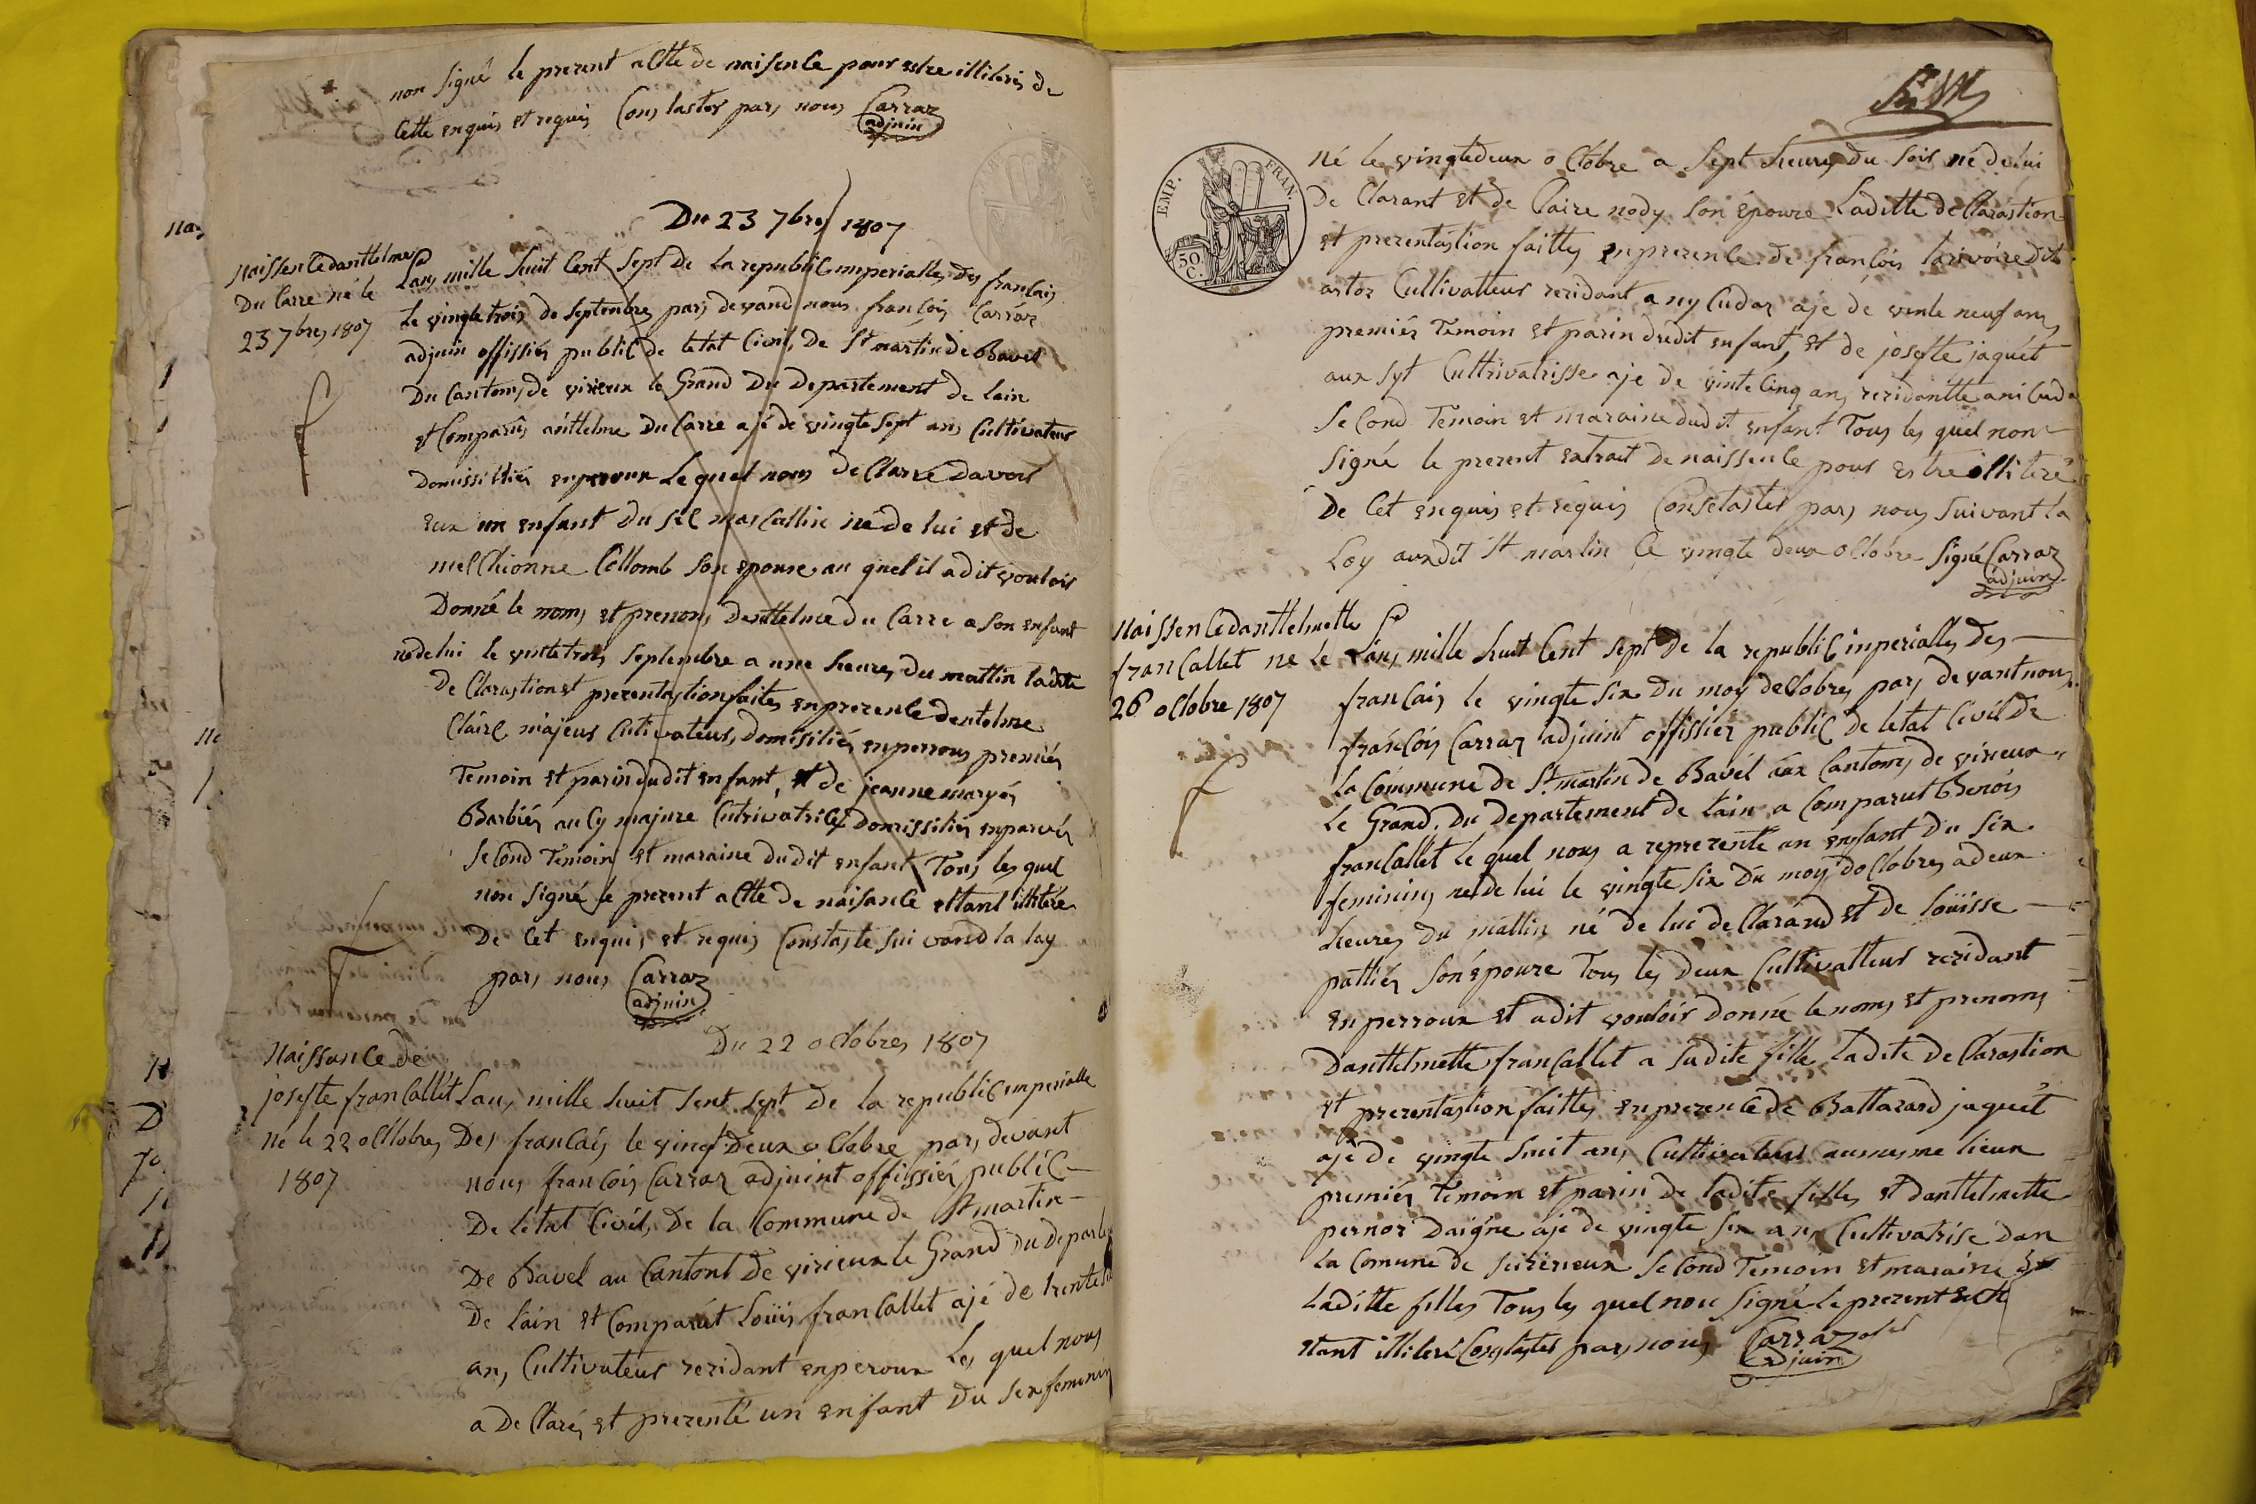 non signé le prezent actte de naisence pour estre illiteré de
cette enquis et requis constaster par nous Carraz
adjuin
Du 23 7bre 1807
Naissence danttelme
Du Carre né le
23 7bre 1807
Lan mille huit cent sept de la republic imperialle des francais
le vingte trois de septembre par devand nous francois Carraz
adjuin offissier public de letat Civil de St martin de Bavel
Du Cantom de virieux le Grand Du Departement de lain
et Comparu anttelme Du Carre ajé de vingte sept ans Cultivateur
Domissillié en peroux Lequel nous de Clarre Davoir
eux un enfant Du sex mascullin né de lui et de
melChionne Collomb son epouse au quel il a dit vouloir
Donné le nom et prenom Danttelme Du Carre a son enfant
né de lui le vintetrois septembre a une heure du mattin ladite
de Clarastion et prezentastion faites en prezence dentelme
Claire majeur Cultivateur Domisilié en perroux premier
Temoin et parin dudit enfant, et de jeanne maryé
Barbier au Cy majure Cutrivatrice Domissilié en parvé
second Temoin et maraine dudit enfant Tous les quel
non signé le prezent actte de naisance ettant illitéré
De Cet enquis et requis Constaste suivand la lay
par nous Carraz
adjuin
Du 22 octobre 1807
Naissance de
josefte francallet
né le 22 octtobre
1807
Lan mille huit sent sept De la republic imperialle
Des francais le vingt Deux octobre par devant
nous francois Carraz adjuint offissier public
De letat Civil De la Commune de St martin
De Bavel au Cantont De virieux le Grand Du Depart
De lain et Comparut Louis francallet ajé de trente
an, Cultivateur rezidant en peroux Les quel nous
a De Claré et prezenté un enfant Du sex feminin
EMP. FRAN.
50 C.
né le vingtedeux octobre a sept heure Du soir né de lui
De Clarant et de Claire nody son epouze Laditte de Clarastion
et prezentastion faittes en prezence de francois larivoire dit
artoz Cultivatteur rezidant a ny Cudaz ajé de vente neuf ans
premier Temoin et parin dudit enfant, et de josefte jaquet
aux syt Cultrivatrisse aje de vinte cinq an, rezidantte a ni Cuda
seCond Temoin et maraine dudit enfant Tous les quel non
signé le prezent extrait De naissence pour estre illiteré
De Cet enquis et requis Constaster par nous suivant la
Loy auxdit St martin Ce vingte deux octobre signé Carraz
adjuin
Naissence danttelmette
francallet né le
26 octobre 1807
Lan mille huit Cent sept De la republic inperialle Des
francais le vingte six Du moy doctobre par devant nous
francois Carraz adjuint offissier public de letat Civil De
la Commune de St martin de Bavél aux Cantom de virieux
le Grand Du departement de lain a Comparut Benoit
francallet le quel nous a reprezenté un enfant Du six
feminin né de lui le vingte six Du moy doctobre a deux
heure Du mattin né de lui de Clarand et de Louisse
pattier son epouze Tous les Deux Cultivatteur rezidant
en perroux et a dit vouloir Donné le nom et prenom
Danttelmette francallet a sudite fille Ladite de Clarastion
et prezentastion faittes en prezence de Battazard jaquét
ajé de vingte huit an, Cultivateur au mesme lieux
premier Temoin et parin de ladite filles et danttelmette
pernoz Daigne aje de vingte six an, Cultivatrise Dan
la Comune de seizerieux seCond Temoin et maraine de
laditte filles Tous les quel non signé le prezent actte
etant illiteré Constater par nous Carraz
adjuin